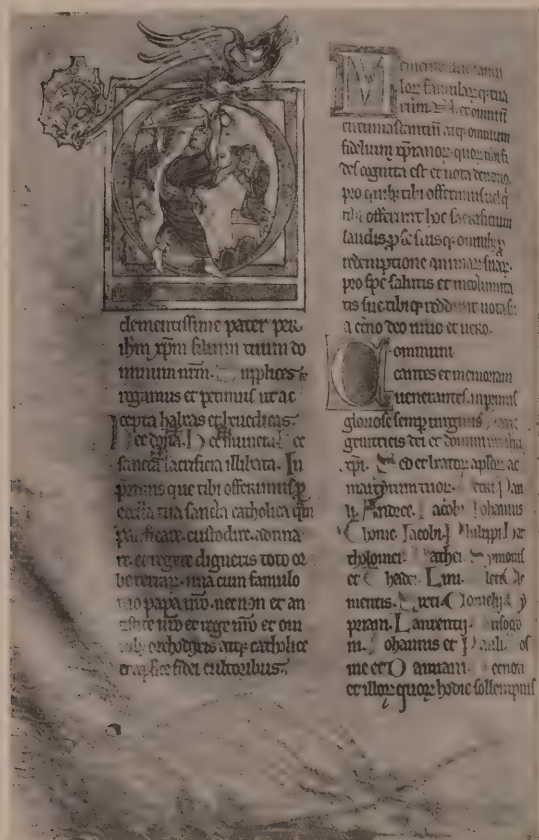 clementissime pater per
ihm xpm filium tuum do
minum nrm. supplices
rogamus et petimus ut ac
cepta habeas et benedicas.
Hec dona. Hec munera. Hec
sancta sacrificia illibata. In
primis que tibi offerimus p
ecclia tua sancta catholica qm
pacificare. custodire. aduna
re. et regere digneris toto or
be terrarum. una cum famulo
tuo papa nro. necnon et an
tistite nro et rege nro et om
nibus orthodoxis atq catholice
et aplice fidei cultoribus.
M
lor famularq tua
rum. et omnium
circumastantium atq omnium
fidelium xpianor quor tibi fi
des cognita est et nota deuotio
pro quibus tibi offerimus uel q
tibi offerunt hoc sacrificium
laudis p se suisq omnibus p
redemptione animar suar.
pro spe salutis et incolumita
tis sue. tibiq reddunt uota su
a eterno deo uiuo et uero.
Communi
cantes et memoriam
uenerantes. inprimis
gloriose semp uirginis
genitricis dei et domini
xpi. Sed et beator aplor ac
martyrum tuor. Petri Pau
li. Andree. Jacobi Johannis
Thome. Jacobi. Philippi Bar
tholomei. Mathei. Symonis
et Thadei. Lini. Cleti Cle
mentis. Cornelii Cy
priani. Laurentii.
ni. Johannis et Pauli. Cos
me et Damiani.
et illor quor hodie sollempnis